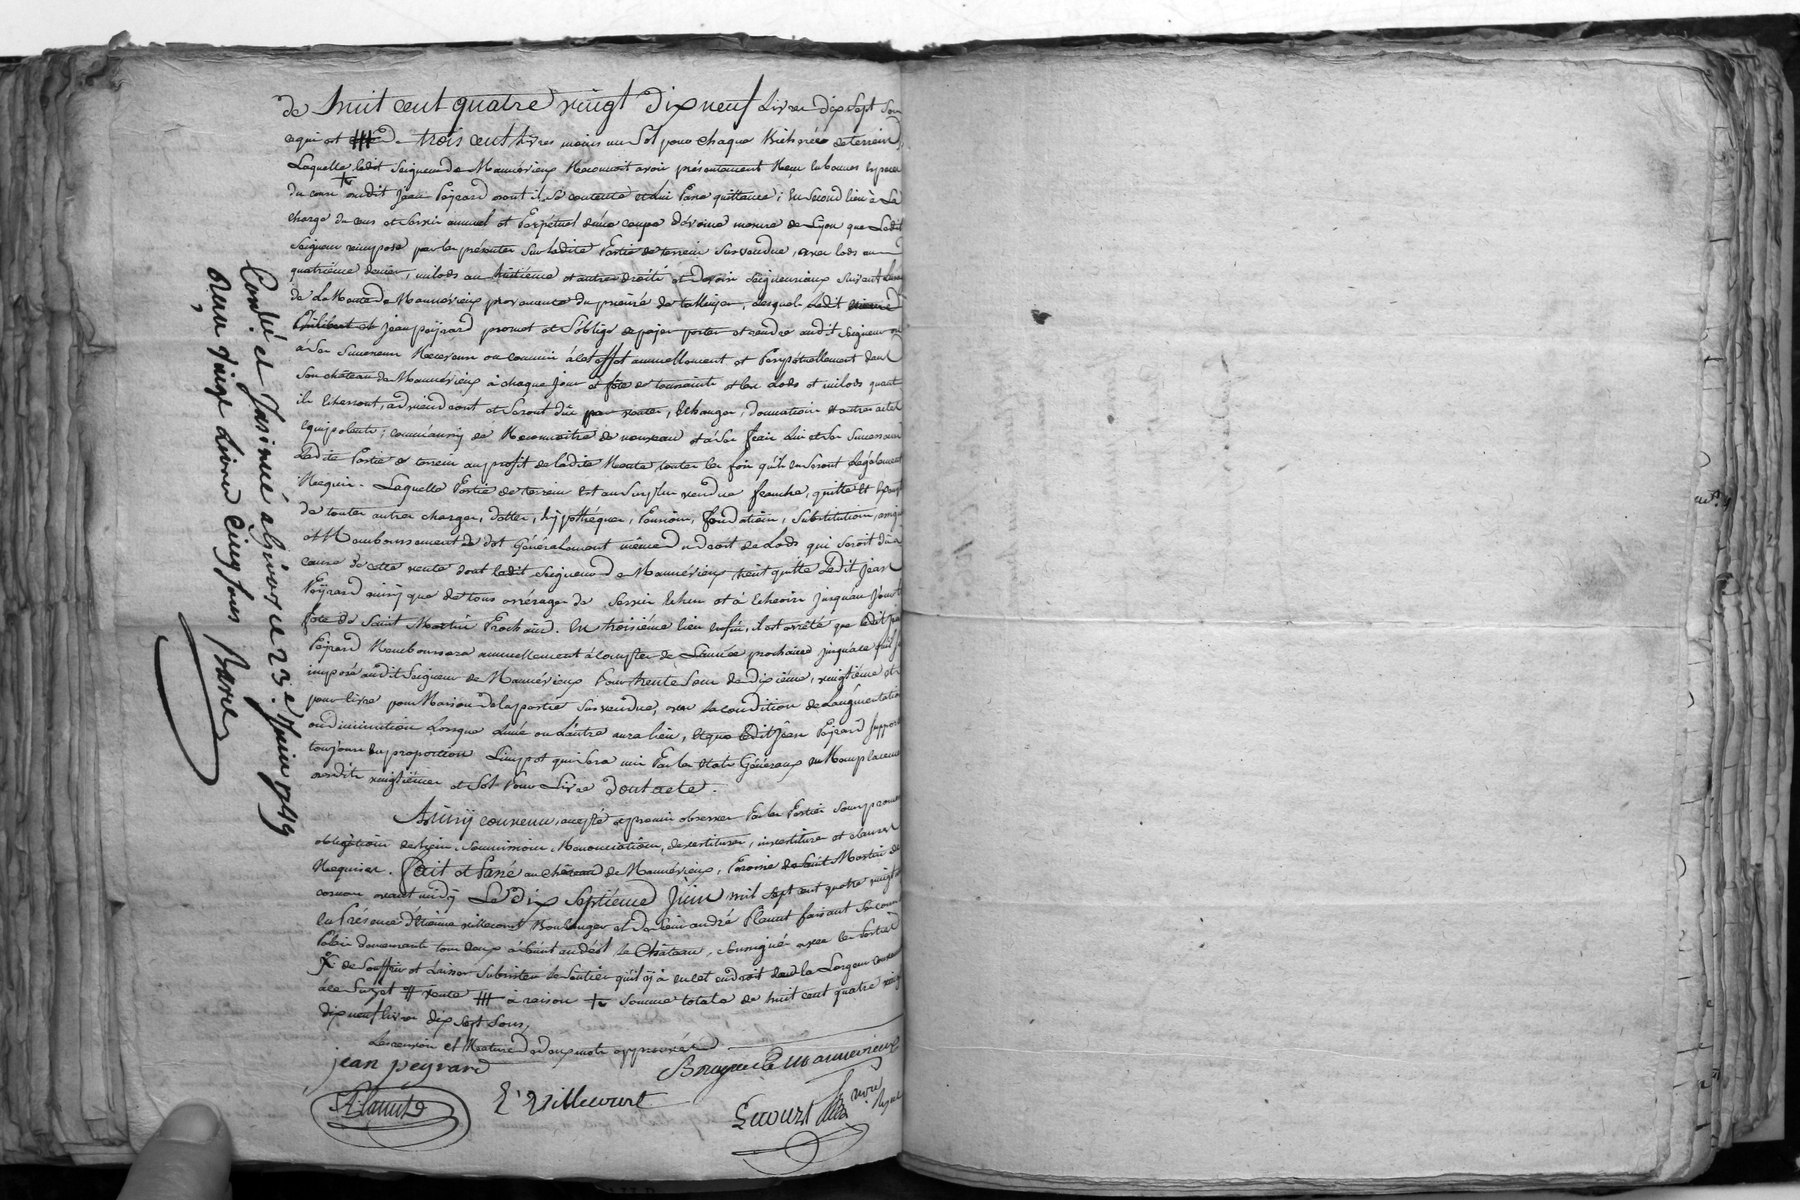 de huit cent quatre vingt dix neuf livres dix sept sous
ce qui est trois cent livres moins un sol pour chaque Bichrée de terrein
Laquelle ledit Seigneur de Mannévieux Reconnoit avoir présentement Reçu en bonnes espèces
du cours dudit Jean Peÿrard dont il se contente et lui Passe quittance ; En second lieu à La
charge du cens et servis annuel et Perpétuel d'une coupe d'avoine mesure de Lyon que Ledit
Seigneur impose par les présentes sur ladite Partie de terrein susvendue, avec lods au
quatrième denier, milods au huitième et autres droits et devoirs seigneuriaux suivant
de La Rente de Mannévieux provenante du prieuré de taluyer, lesquels ledit
Philibert et jean peÿrard promet et s'oblige de payer porter et rendre audit Seigneur ou
à ses Successeurs Receveurs ou commis à cet effet annuellement et Perpétuellement dans
Son château de Mannévieux à chaque jour et fête de toussaints et les Lods et milods quant
ils écherront, adviendront et seront dûs par ventes, échanges, donnations et autres actes
équipolents ; comm'aussy de Reconnoitre de nouveau et à ses frais Lui et ses Successeurs
Ladite Partie de terrein au profit de ladite Rente, toutes les fois qu'ils en seront Légalement
Requis. Laquelle Partie de terrein est au surplus vendue franche, quitte et exempte
de toutes autres charges, dettes, hypothéques, Pensions, fondations, substitutions,
et Remboursement de dot Généralement même du droit de Lods qui seroit dû à
cause de cette vente dont ledit Seigneur de Mannévieux tient quitte Ledit Jean
Peÿrard ainsy que de tous arrérages de servis échus et à échoir jusqu'au jour et
fête de Saint Martin Prochain. En troisième lieu enfin, il est arrêté que Ledit Jean
Peÿrard Remboursera annuellement à compter de L'année prochaine
imposé audit Seigneur de Mannévieux Pour trente sous de dixième, vingtième et
pour livre pour Raison de la partie susvendue, avec la condition de L'augmentation
ou diminution Lorsque L'une ou L'autre aura lieu, et que Ledit Jean Peÿrard supportera
toujours en proportion L'impot qui sera mis Par les états Généraux en Remplacement
desdits vingtièmes et sol Pour Livre dont acte.
Ainsÿ convenu, accepté et promis observer Par les Parties sous promesse
obligation de biens, soumissions Renonciations, devestitures, investitures et clauses
Requises. Fait et Passé au château de Mannévieux, Paroisse de Saint Martin de
cornas avant midÿ Le dix Septième Juin mil sept cent quatre vingt
En Présence d'étienne villecourt Boulanger et de sieur andré Planut faisant
Palais demeurants tous deux à Saint andéol le Château, soussignés avec les Parties
de souffrir et Laisser subsister le sentier qu'il ÿ a en cet endroit dans la Largeur
à ce sujet # vente ### à raison + somme totale de huit cent quatre vingt
dix neuf livres dix sept sous,
mots approuvés
jean peyrard
Bourgeois Mannevieux
APlanut
E. Villecourt
Controllé et Insinué à Givors ce 23.e Juin 1789
Reçu quinze Livres cinq sous Barel